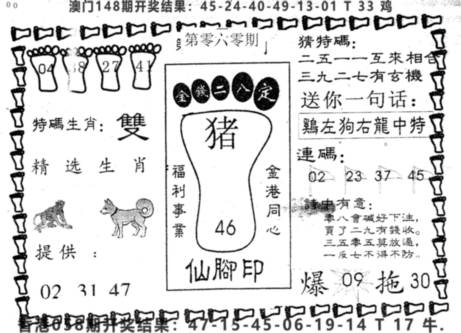 澳门148期开奖结果：45-24-40-49-13-01 T 33 鸡
第零六零期
04 38 27 41
特碼生肖：雙
精选生肖
提供：
02 31 47
金錢二八定
猪
福利事業
金港同心
46
仙腳印
猜特碼：
二五一一互來相合
三九二七有玄機
送你一句话：
鷄左狗右龍中特
连碼：
02 23 37 45
有意：
零八會碱好下注，
買了二九有錢收。
三五零五莫放過，
一反七不得不防。
爆 09 拖 30
香港058期开奖结果：47-15-45-06-19-14 T 17 牛.